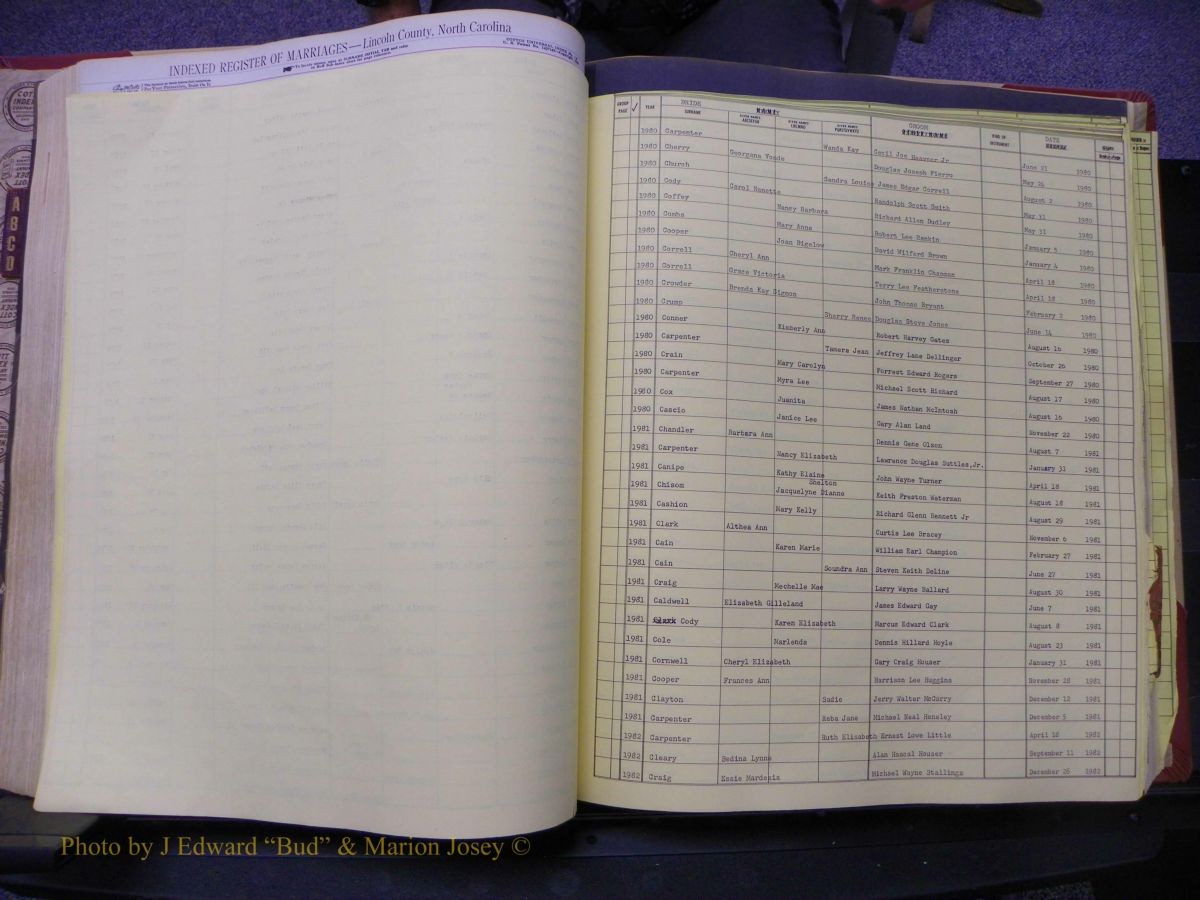 INDEXED REGISTER OF MARRIAGES—Lincoln County, North Carolina
A
B
C
D
GROUP PAGE YEAR BRIDE SURNAME NAME GROOM KIND OF INSTRUMENT DATE
1980 Carpenter Wanda Kay Cecil Joe Heavner Jr June 21 1980
1980 Cherry Georgana Woods Douglas Joseph Pierro May 26 1980
1980 Church Sandra Louise James Edgar Correll August 2 1980
1980 Cody Carol Renette Randolph Scott Smith May 31 1980
1980 Coffey Nancy Barbara Richard Allen Dudley May 31 1980
1980 Combs Mary Anna Robert Lee Rankin January 5 1980
1980 Cooper Joan Bigelow David Wilford Brown January 4 1980
1980 Correll Cheryl Ann Mark Franklin Chapman April 18 1980
1980 Correll Grace Victoria Terry Lee Featherstone April 18 1980
1980 Crowder Brenda Kay Sigmon John Thomas Bryant February 2 1980
1980 Crump Sherry Renee Douglas Steve Jones June 14 1980
1980 Conner Kimberly Ann Robert Harvey Gates August 16 1980
1980 Carpenter Tamera Jean Jeffrey Lane Dellinger October 26 1980
1980 Crain Mary Carolyn Forrest Edward Rogers September 27 1980
1980 Carpenter Myra Lee Michael Scott Richard August 17 1980
1980 Cox Juanita James Nathan McIntosh August 16 1980
1980 Cascio Janice Lee Gary Alan Land November 22 1980
1981 Chandler Barbara Ann Dennis Gene Olson August 7 1981
1981 Carpenter Nancy Elizabeth Lawrence Douglas Suttles,Jr. January 31 1981
1981 Canipe Kathy Elaine John Wayne Turner April 18 1981
1981 Chisom Shelton Jacquelyne Dianne Keith Preston Waterman August 18 1981
1981 Cashion Mary Kelly Richard Glenn Bennett Jr August 29 1981
1981 Clark Althea Ann Curtis Lee Dracey November 6 1981
1981 Cain Karen Marie William Earl Champion February 27 1981
1981 Cain Soundra Ann Steven Keith Deline June 27 1981
1981 Craig Mechelle Mae Larry Wayne Ballard August 30 1981
1981 Caldwell Elizabeth Gilleland James Edward Gay June 7 1981
1981 Cody Karen Elizabeth Marcus Edward Clark August 8 1981
1981 Cole Marlenda Dennis Hillard Hoyle August 23 1981
1981 Cornwell Cheryl Elizabeth Gary Craig Houser January 31 1981
1981 Cooper Frances Ann Harrison Lee Huggins November 28 1981
1981 Clayton Sadie Jerry Walter McCurry December 12 1981
1981 Carpenter Reba Jane Michael Neal Hensley December 5 1981
1982 Carpenter Ruth Elizabeth Ernest Lowe Little April 18 1982
1982 Cleary Bedina Lynne Alan Hascal Houser September 11 1982
1982 Craig Essie Mardecia Michael Wayne Stallings December 26 1982
Photo by J Edward “Bud” & Marion Josey ©